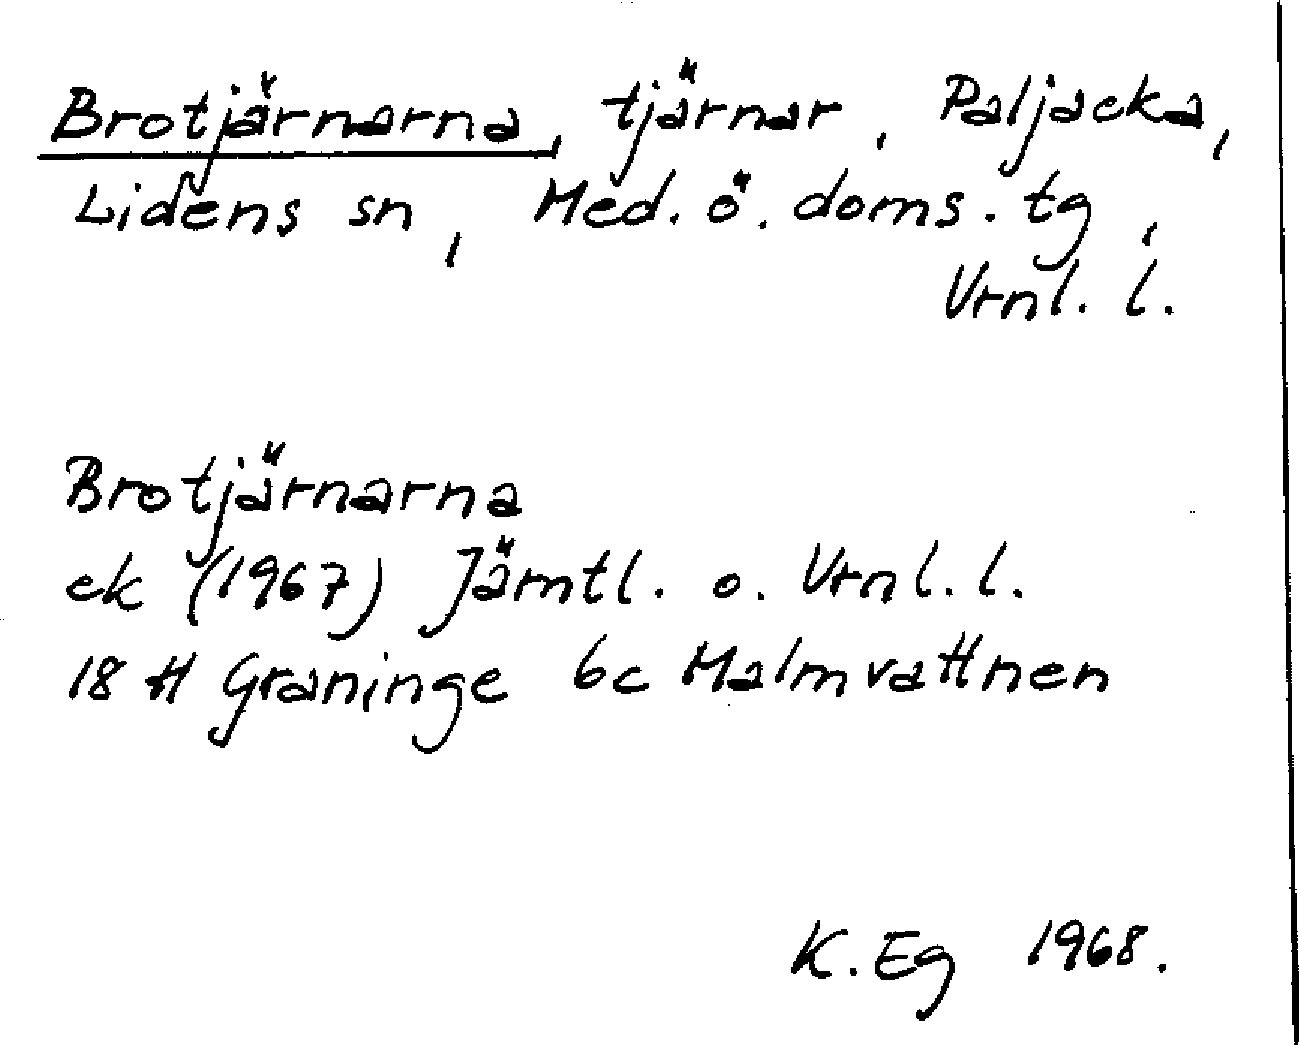 Brotjärnarna, tjärnar, Paljacka,
Lidens sn, Med. ö. doms. tg,
Vrnl. l.
Brotjärnarna
ek (1967) Jämtl. o. Vrnl. l.
18 H Graninge 6c Malmvattnen
K. Eg 1968.